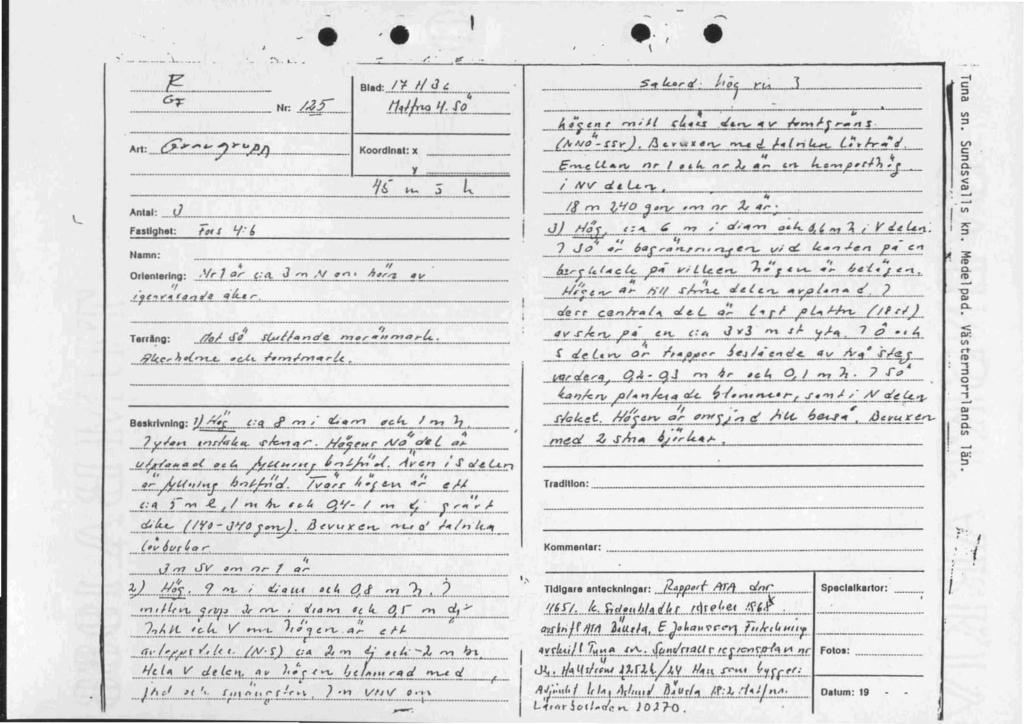 R
GF
Nr: 125
Art: Gravgrupp
Antal: 3
Fastighet: Fors 4:6
Namn:
Orientering: Nr 1 är c:a 3 m N om hörn av
igenväxande åker
Terräng: Mot SÖ sluttande moränmark.
Åkerholme och tomtmark.
Blad: 17 H 3c
Matfors 4. SÖ
Koordinat: x
y
45 m ö h
Beskrivning: 1) Hög c:a 8 m i diam och 1 m h.
I ytan enstaka stenar. Högens NÖ del är
utplanad och fyllning bortförd. Även i S delen
är fyllning bortförd. Tvärs högen är ett
c:a 5 m l, 1 m br och 0,4-1 m dj grävt
dike (140-340 gon). Bevuxen med talrika
lövbuskar
3 m SV om nr 1 är
2) Hög, 9 m i diam och 0,8 m h. I
mitten grop 2 m i diam och 0,5 m dj
I och V om högen är ett
avloppsdike (N-S) c:a 2 m dj och 2 m br.
Hela V delen av högen belamrad med
jord och 7 m VNV om
Sakord: hög ru 3
högens mitt skärs den av tomtgräns
(NNÖ-SSV). Bevuxen med talrika lövträd.
Emellan nr 1 och nr 2 är en komposthög
i NV delen.
18 m 240 gon om nr 2 är:
3) Hög, c:a 6 m i diam och 0,6 m h i V delen.
I SÖ är begränsningen vid kanten på en
berghäll på vilken högen är belägen.
Högen är till större delen avplanad. I
dess centrala del är lagt plattor (18 st)
av sten på en c:a 3x3 m st yta. I Ö och
S delen är trappor bestående av två steg
vardera, 0,2-0,3 m br och 0,1 m h. I SÖ
kanten planterade blommor, samt i N delen
staket. Högen är omgjord till berså. Bevuxen
med 2 stora björkar.
Tradition:
Kommentar:
Tidigare anteckningar: Rapport ATA dnr
4651. K. Sidenbladhs 1868
avskrift ATA Bäuela, E Johansson Förteckning
avskrift Tuna sn. Sundsvalls regionsplan nr
Hallström 12526/24 Han som bygger:
Matfors.
10270.
Specialkartor:
Foton:
Datum: 19 - -
Tuna sn. Sundsvalls kn. Medelpad. Västernorrlands län.